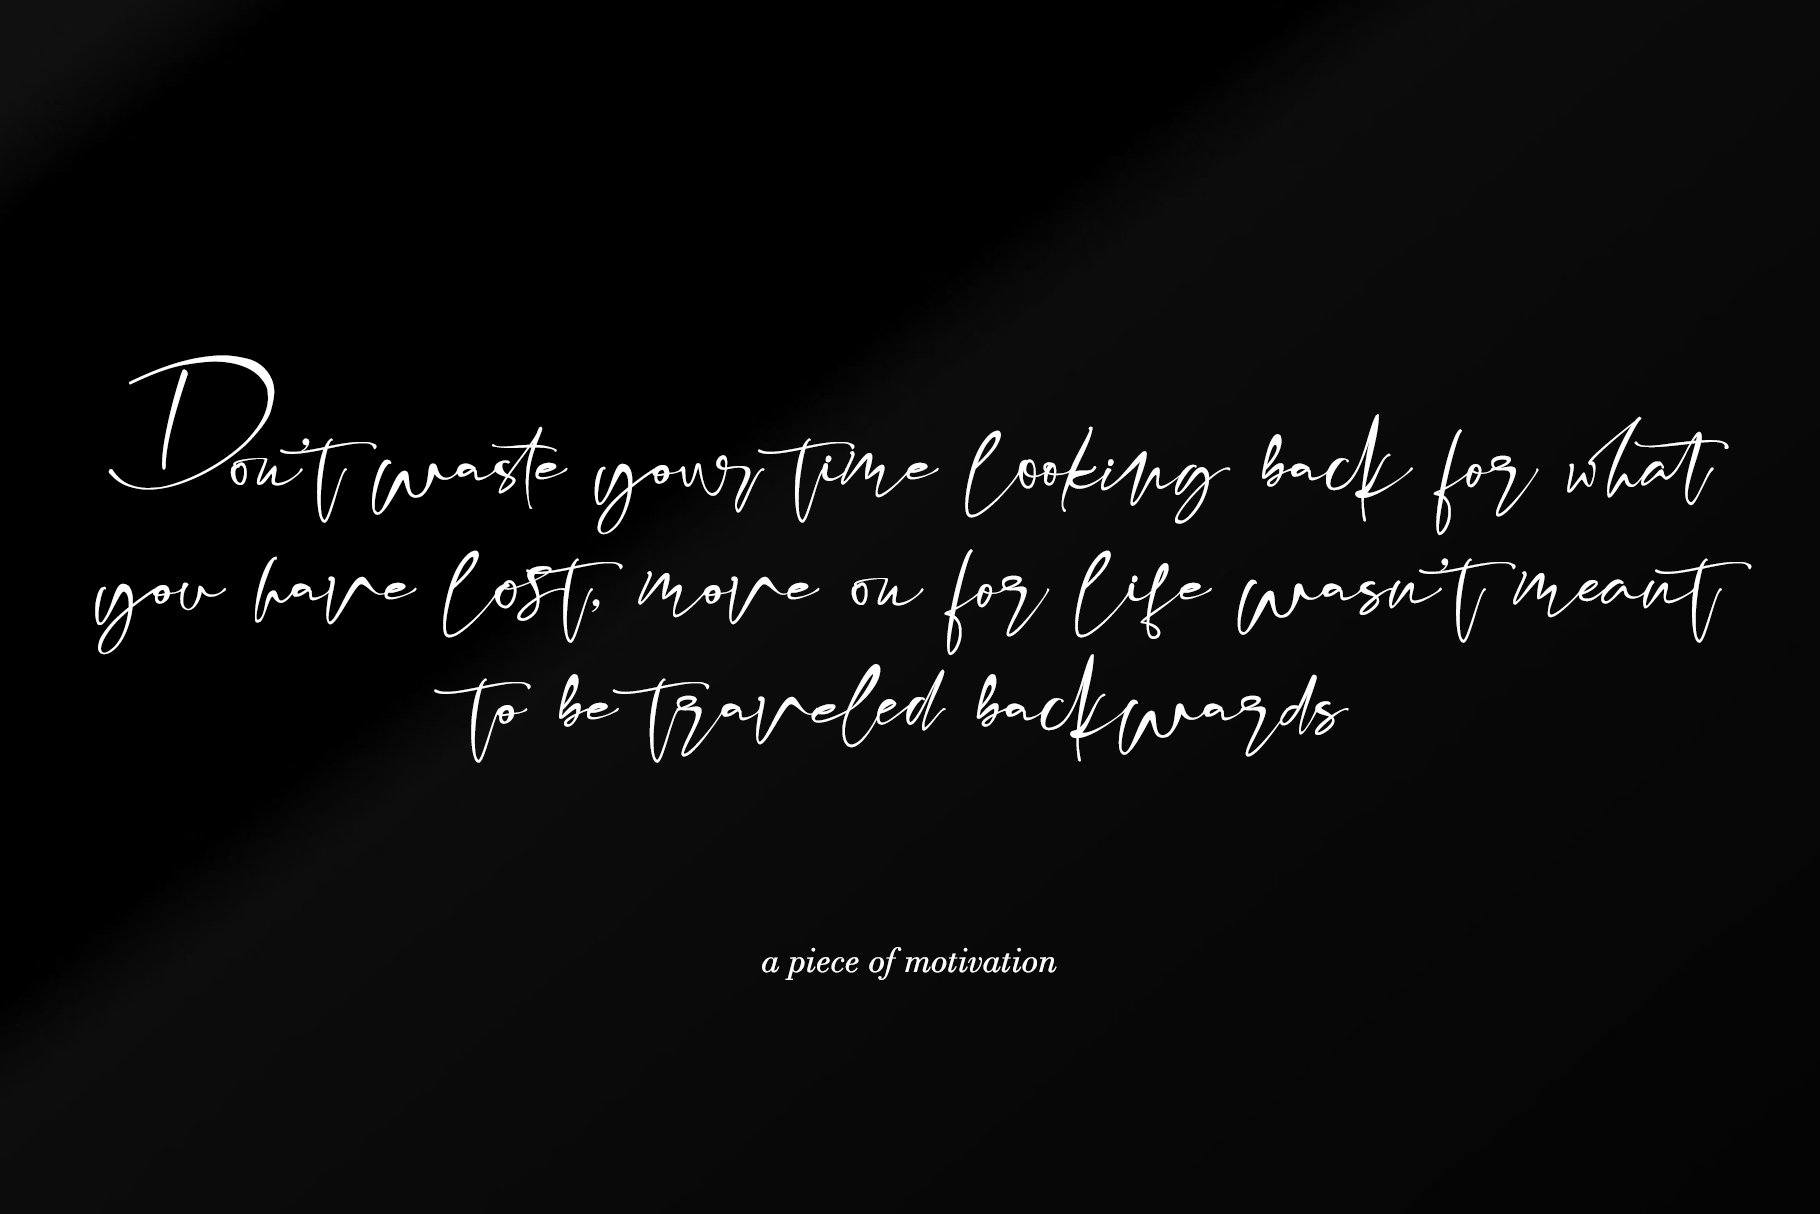 Don't waste your time looking back for what
you have lost, move on for life wasn't meant
to be traveled backwards
a piece of motivation